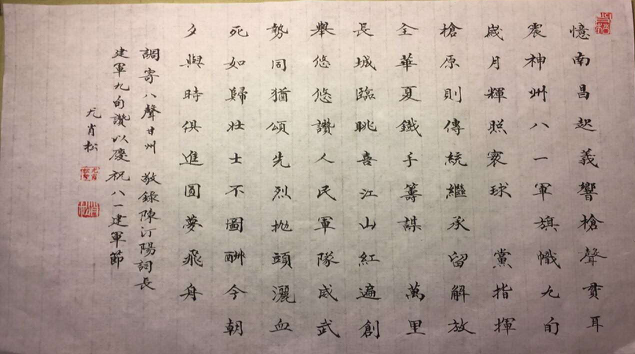 憶南昌起義響槍聲貫耳
震神州八一軍旗幟九旬
歲月輝照寰球 黨指揮
槍原則傳統繼承留解放
全華夏鐵手籌謀 萬里
長城臨眺喜江山紅遍創
舉悠悠讚人民軍隊威武
勢同猶頌先烈拋頭灑血
死如歸壯士不圖酬今朝
夕與時俱進圓夢飛舟
調寄八聲甘州 敬錄陳汀陽詞長
建軍九旬讚以慶祝八一建軍節
尤肖松